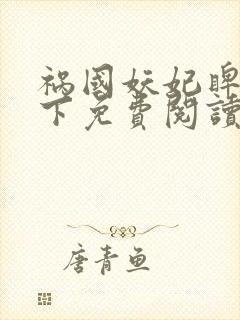 祸國妖妃睥
下免費閱讀
唐青鱼